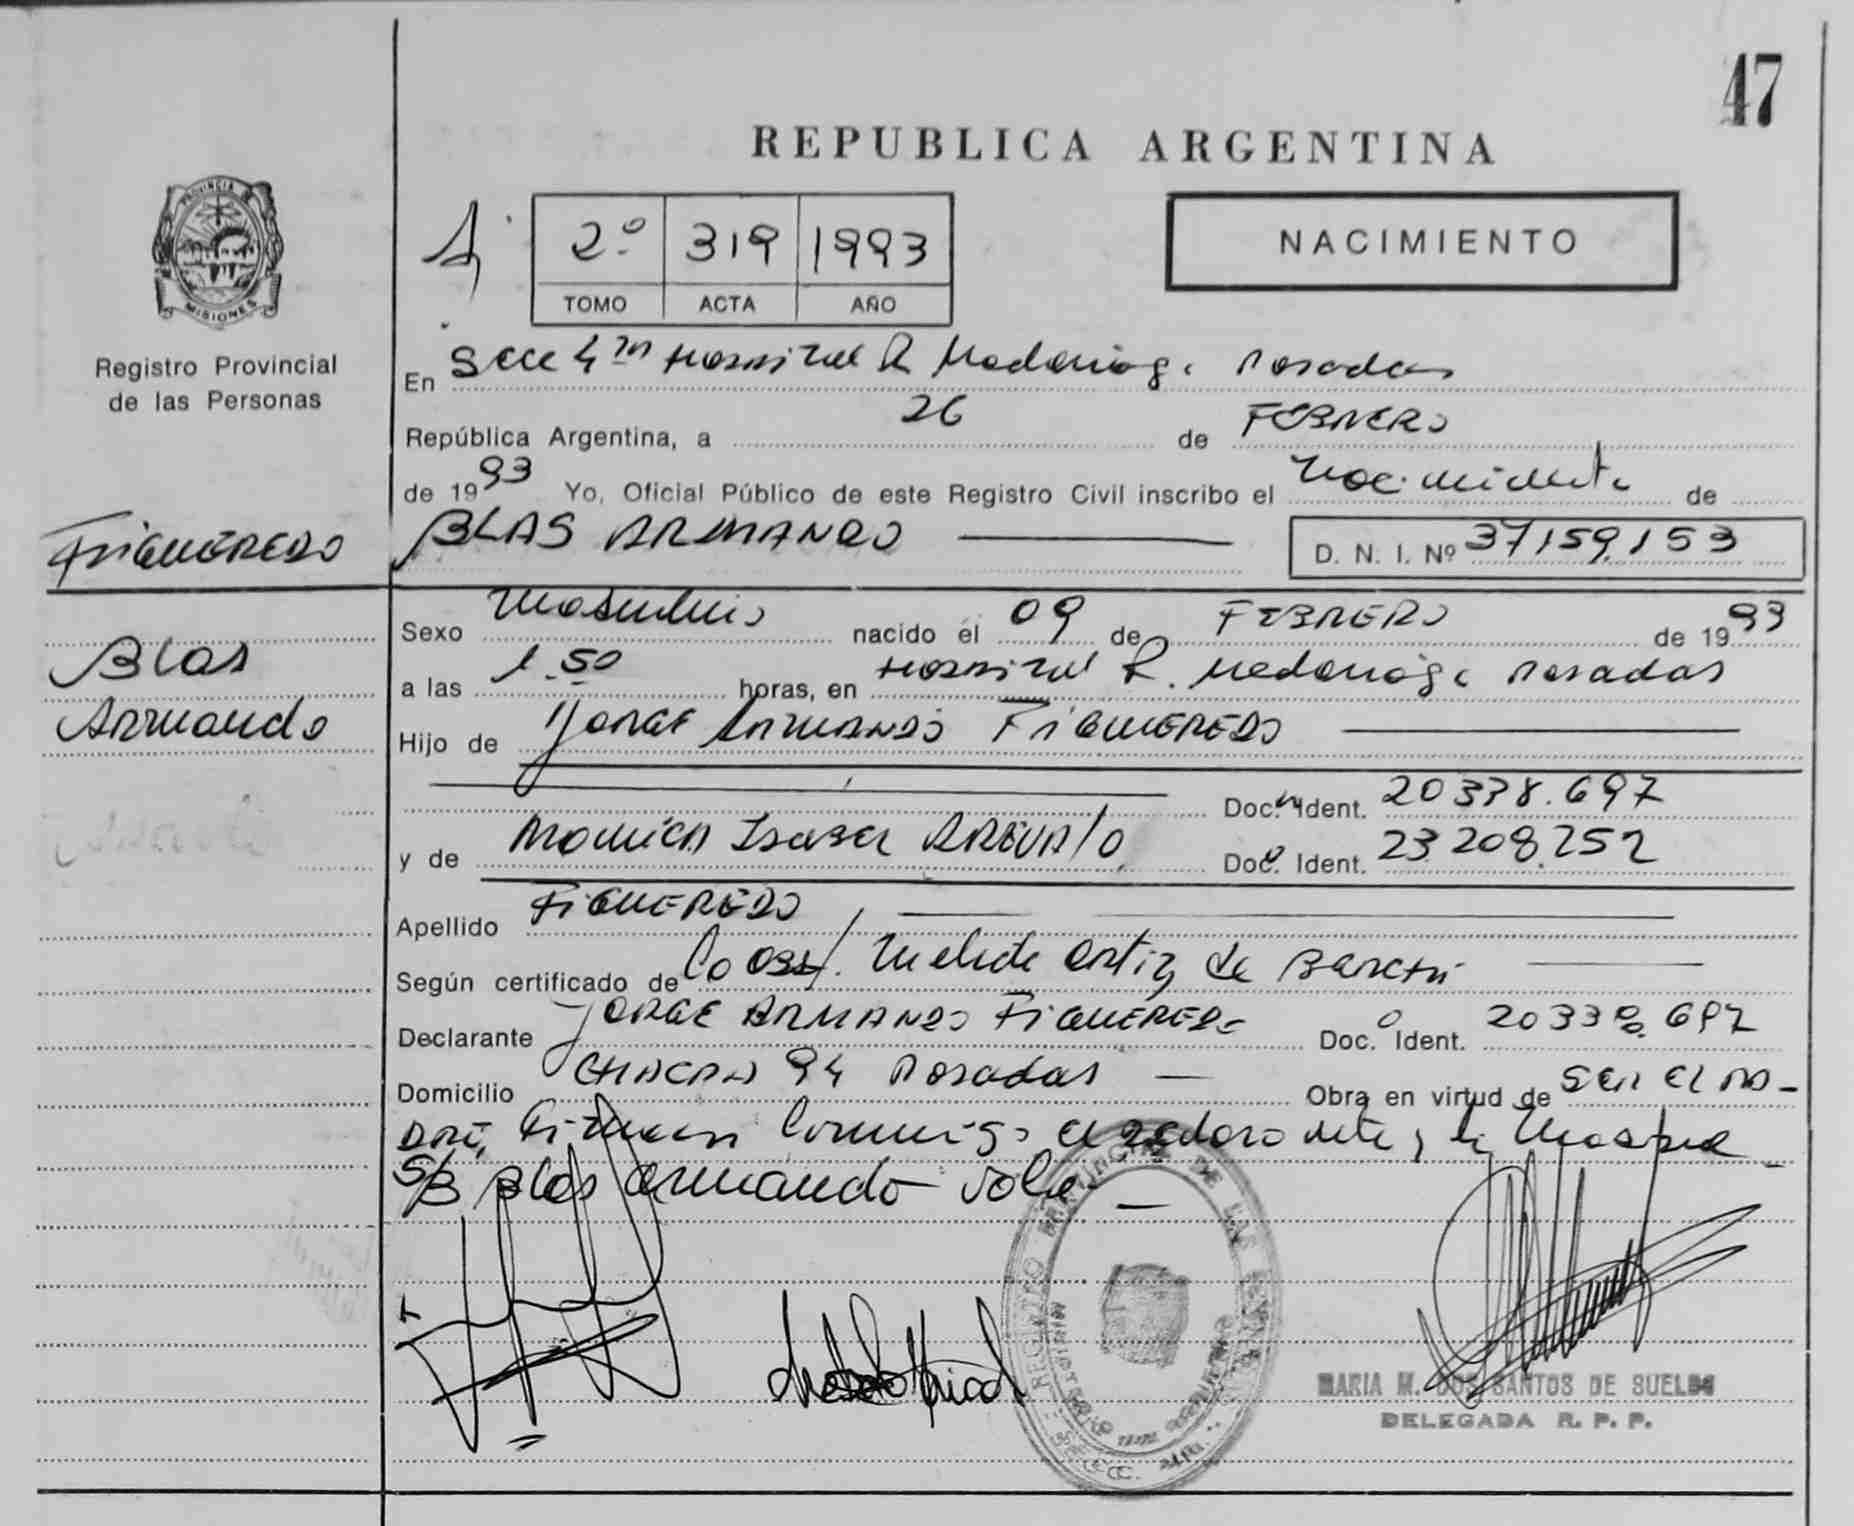 47
REPUBLICA ARGENTINA
PROVINCIA DE
MISIONES
Registro Provincial
de las Personas
2º 319 1993
TOMO ACTA AÑO
NACIMIENTO
En Secc 4ta Hospital R Madariaga Posadas
República Argentina, a 26 de FEBRERO
de 1993 Yo, Oficial Público de este Registro Civil inscribo el nacimiento de
FIGUEREDO BLAS ARMANDO D. N. I. Nº 37.159.153
Blas
Armando
Sexo Masculino nacido el 09 de FEBRERO de 1993
a las 1.50 horas, en Hospital R. Madariaga Posadas
Hijo de JORGE ARMANDO FIGUEREDO
Doc. Ident. 20338.697
y de MONICA ISABEL AREVALO Doc. Ident. 23.208.252
Apellido FIGUEREDO
Según certificado de la Obst. Melide Ortiz de
Declarante JORGE ARMANDO FIGUEREDO Doc. Ident. 20338.697
Domicilio CHACRA 94 Posadas Obra en virtud de SER EL PA-
DRE, Firman conmigo el declarante y la Madre
S/B Blas Armando Vale
REGISTRO PROVINCIAL DE LAS PERSONAS
MARIA M. DOS SANTOS DE SUELDO
DELEGADA R. P. P.